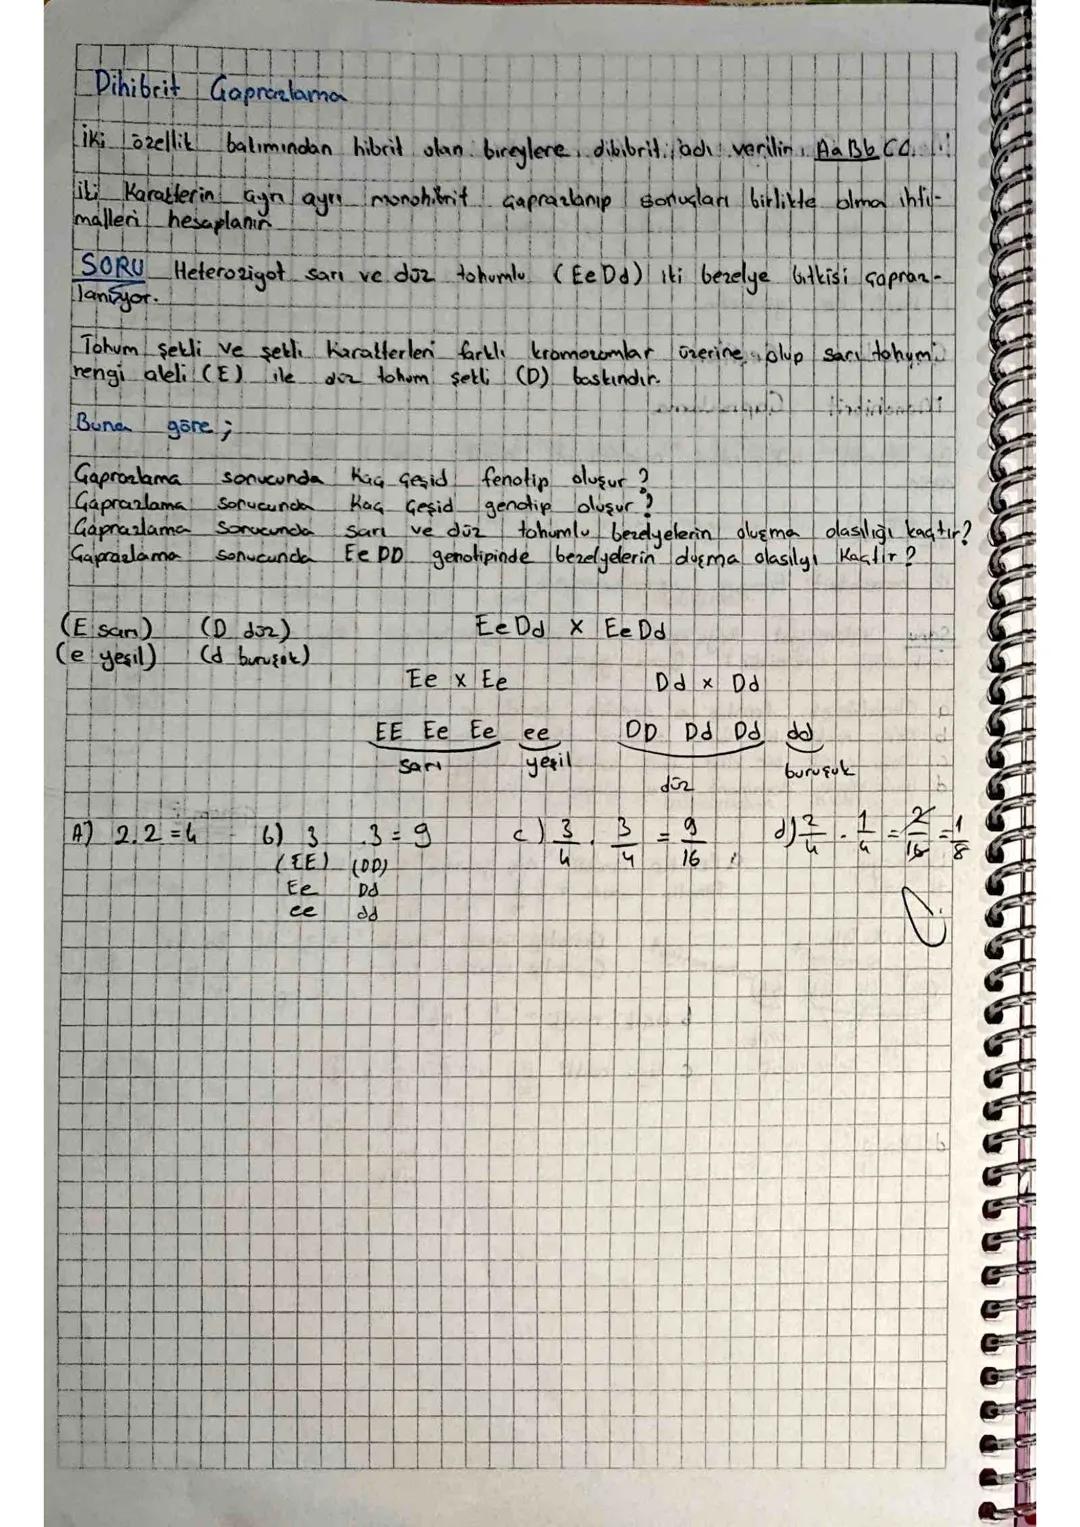 Dihibrit Çaprazlama
İki özellik bakımından hibrit olan bireylere dibibrit adı verilir. AaBbCC
İki Karakterin ayrı ayrı monohibrit çaprazlanıp sonuçları birlikte olma ihti-
malleri hesaplanır
SORU Heterozigot sarı ve düz tohumlu (EeDd) iki bezelye bitkisi çapraz-
lanıyor.
Tohum şekli ve şekli Karakterleri farklı kromozomlar üzerine olup sarı tohum
rengi aleli (E) ile düz tohum şekli (D) baskındır.
Buna göre;
Çaprazlama sonucunda Kaç Çeşid fenotip oluşur?
Çaprazlama sonucunda Kaç Çeşid genotip oluşur?
Çaprazlama Sonucunda sarı ve düz tohumlu bezelyelerin oluşma olasılığı kaçtır?
Çaprazlama sonucunda EeDD genotipinde bezelyelerin oluşma olasılığı Kaçtır?
(E sarı) (D düz) EeDd x EeDd
(e yeşil) (d buruşok)
Ee x Ee Dd x Dd
EE Ee Ee ee DD Dd Dd dd
sarı yeşil düz buruşuk
A) 2.2=4 b) 3 .3=9 c) 3/4 . 3/4 = 9/16 d) 2/4 . 1/4 = 2/16 = 1/8
(EE) (DD)
Ee Dd
ee dd